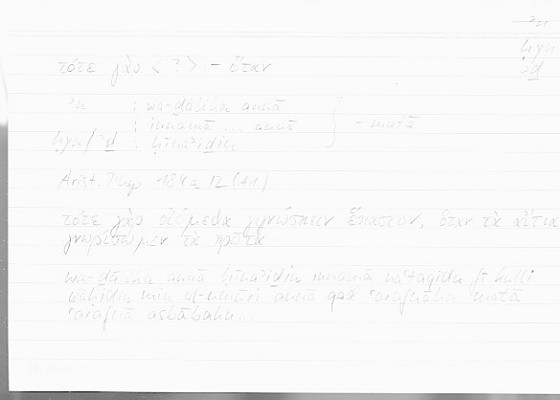 ʾn
hyn
ʾd
τότε γὰρ < ? > – ὅταν
ʾn : wa-ḏālika annā
: innamā ... annā } – matā
hyn/ʾd : ḥīnaʾiḏin
Arist. Phys. 184a 12 (+1)
τότε γὰρ οἰόμεθα γιγνώσκειν ἕκαστον, ὅταν τὰ αἴτια
γνωρίσωμεν τὰ πρῶτα
wa-ḏālika annā ḥīnaʾiḏin innamā naʿtaqidu fī kulli
wāḥidin min al-umūri annā qad ʿarafnāhu matā
ʿarafnā asbābahu...